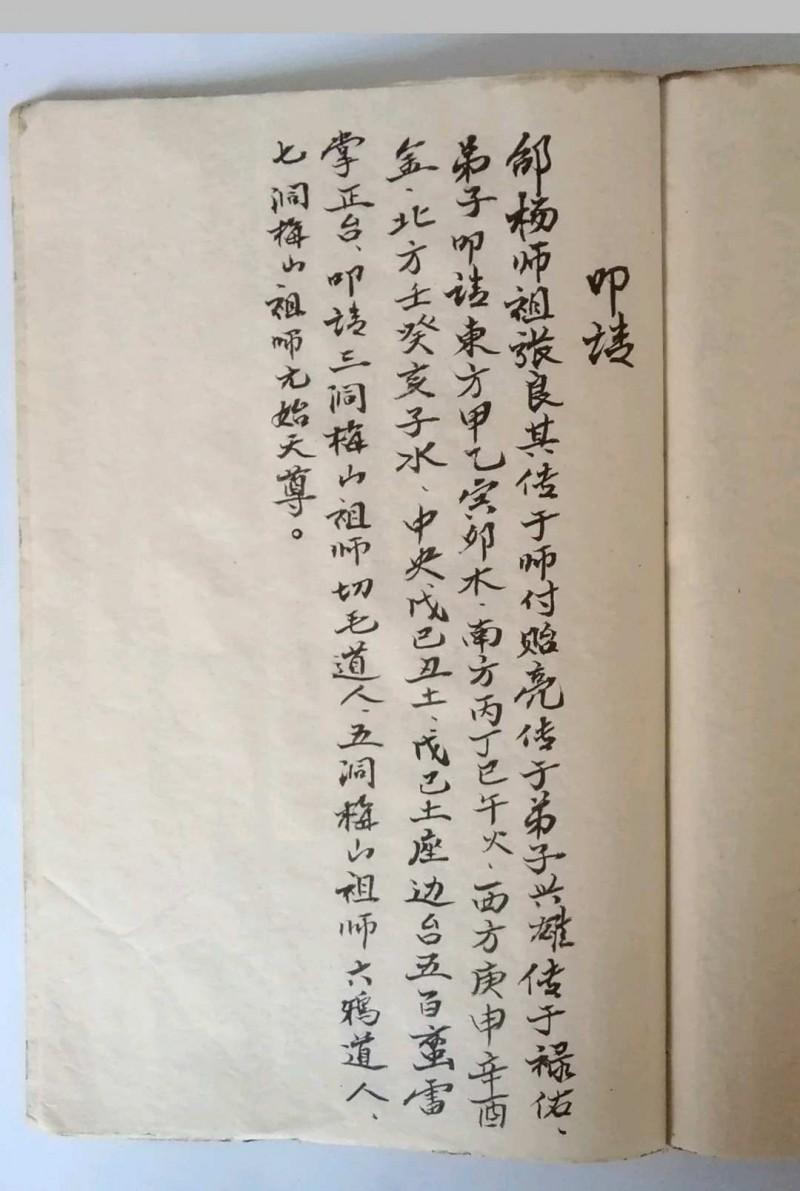 叩请
郃杨师祖張良其传于师付贻亮传于弟子兴雄传于禄佑、
弟子叩请東方甲乙寅卯木、南方丙丁巳午火、西方庚申辛酉
金、北方壬癸亥子水、中央、戊己丑土、戊己土座边台五百蛮雷
掌正台、叩请三洞梅山祖师切毛道人、五洞梅山祖师六鸦道人、
七洞梅山祖师元始天尊。